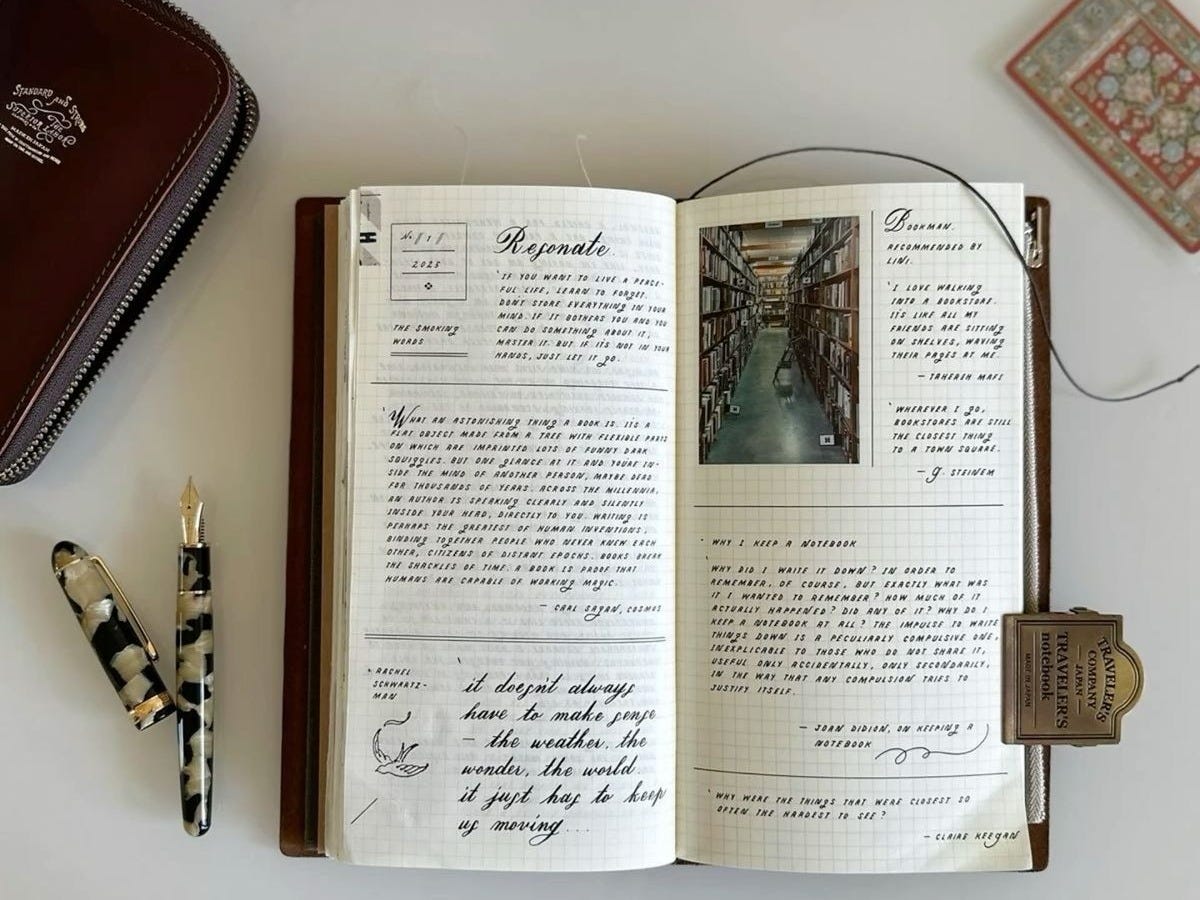 STANDARD AND STRANGE
THE
SUPERIOR LABOR
MADE IN JAPAN
No. 1
2025
THE SMOKING
WORDS
Resonate.
'IF YOU WANT TO LIVE A PEACE-
FUL LIFE, LEARN TO FORGET.
DON'T STORE EVERYTHING IN YOUR
MIND. IF IT BOTHERS YOU AND YOU
CAN DO SOMETHING ABOUT IT,
MASTER IT. BUT IF IT'S NOT IN YOUR
HANDS, JUST LET IT GO.
'WHAT AN ASTONISHING THING A BOOK IS. IT'S A
FLAT OBJECT MADE FROM A TREE WITH FLEXIBLE PARTS
ON WHICH ARE IMPRINTED LOTS OF FUNNY DARK
SQUIGGLES. BUT ONE GLANCE AT IT AND YOU'RE IN-
SIDE THE MIND OF ANOTHER PERSON, MAYBE DEAD
FOR THOUSANDS OF YEARS. ACROSS THE MILLENNIA,
AN AUTHOR IS SPEAKING CLEARLY AND SILENTLY
INSIDE YOUR HEAD, DIRECTLY TO YOU. WRITING IS
PERHAPS THE GREATEST OF HUMAN INVENTIONS,
BINDING TOGETHER PEOPLE WHO NEVER KNEW EACH
OTHER, CITIZENS OF DISTANT EPOCHS. BOOKS BREAK
THE SHACKLES OF TIME. A BOOK IS PROOF THAT
HUMANS ARE CAPABLE OF WORKING MAGIC.
— CARL SAGAN, COSMOS
RACHEL
SCHWARTZ-
MAN
'it doesn't always
have to make sense
— the weather, the
wonder, the world.
it just has to keep
us moving...
BOOKMAN.
RECOMMENDED BY
LINI.
'I LOVE WALKING
INTO A BOOKSTORE.
IT'S LIKE ALL MY
FRIENDS ARE SITTING
ON SHELVES, WAVING
THEIR PAGES AT ME.
— TAHEREH MAFI
'WHEREVER I GO,
BOOKSTORES ARE STILL
THE CLOSEST THING
TO A TOWN SQUARE.
— G. STEINEM
WHY I KEEP A NOTEBOOK
'WHY DID I WRITE IT DOWN? IN ORDER TO
REMEMBER, OF COURSE, BUT EXACTLY WHAT WAS
IT I WANTED TO REMEMBER? HOW MUCH OF IT
ACTUALLY HAPPENED? DID ANY OF IT? WHY DO I
KEEP A NOTEBOOK AT ALL? THE IMPULSE TO WRITE
THINGS DOWN IS A PECULIARLY COMPULSIVE ONE,
INEXPLICABLE TO THOSE WHO DO NOT SHARE IT,
USEFUL ONLY ACCIDENTALLY, ONLY SECONDARILY,
IN THE WAY THAT ANY COMPULSION TRIES TO
JUSTIFY ITSELF.
— JOAN DIDION, ON KEEPING A
NOTEBOOK
'WHY WERE THE THINGS THAT WERE CLOSEST SO
OFTEN THE HARDEST TO SEE?
— CLAIRE KEEGAN
TRAVELER'S
COMPANY
JAPAN
TRAVELER'S
notebook
MADE IN JAPAN